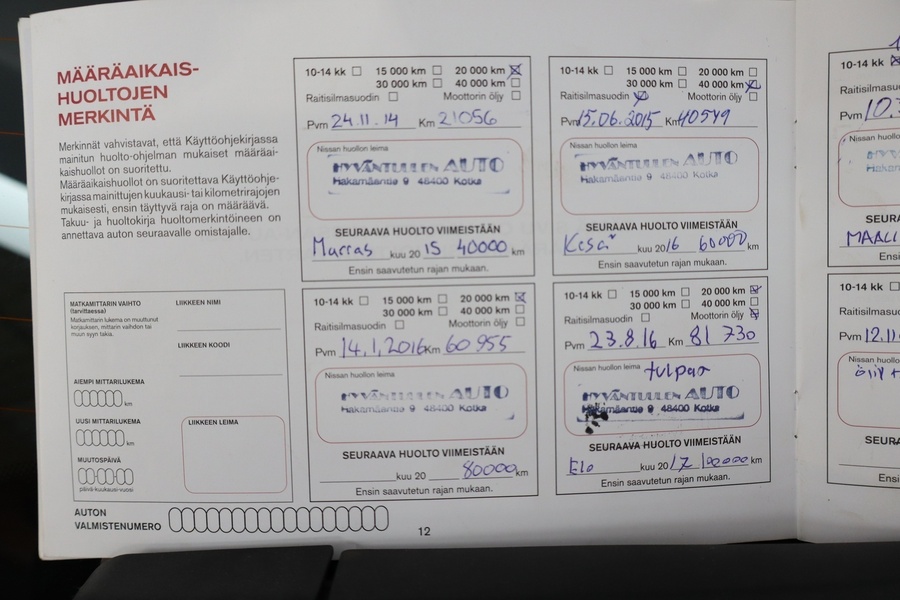 MÄÄRÄAIKAIS-
HUOLTOJEN
MERKINTÄ
Merkinnät vahvistavat, että Käyttöohjekirjassa
mainitun huolto-ohjelman mukaiset määräai-
kaishuollot on suoritettu.
Määräaikaishuollot on suoritettava Käyttöohje-
kirjassa mainittujen kuukausi- tai kilometrirajojen
mukaisesti, ensin täyttyvä raja on määräävä.
Takuu- ja huoltokirja huoltomerkintöineen on
annettava auton seuraavalle omistajalle.
MATKAMITTARIN VAIHTO
(tarvittaessa)
Matkamittarin lukema on muuttunut
korjauksen, mittarin vaihdon tai
muun syyn takia.
LIIKKEEN NIMI
LIIKKEEN KOODI
AIEMPI MITTARILUKEMA
km
UUSI MITTARILUKEMA
km
MUUTOSPÄIVÄ
päivä-kuukausi-vuosi
LIIKKEEN LEIMA
AUTON
VALMISTENUMERO
10-14 kk 15 000 km 20 000 km
30 000 km 40 000 km
Raitisilmasuodin Moottorin öljy
Pvm 24.11.14 Km 21056
Nissan huollon leima
HYVÄNTUULEN AUTO
Hakamäentie 9 48400 Kotka
SEURAAVA HUOLTO VIIMEISTÄÄN
Marras kuu 20 15 40000 km
Ensin saavutetun rajan mukaan.
10-14 kk 15 000 km 20 000 km
30 000 km 40 000 km
Raitisilmasuodin Moottorin öljy
Pvm 15.06.2015 Km 40549
Nissan huollon leima
HYVÄNTUULEN AUTO
Hakamäentie 9 48400 Kotka
SEURAAVA HUOLTO VIIMEISTÄÄN
Kesä kuu 20 16 60000 km
Ensin saavutetun rajan mukaan.
10-14 kk 15 000 km 20 000 km
30 000 km 40 000 km
Raitisilmasuodin Moottorin öljy
Pvm 14.1.2016 Km 60955
Nissan huollon leima
HYVÄNTUULEN AUTO
Hakamäentie 9 48400 Kotka
SEURAAVA HUOLTO VIIMEISTÄÄN
kuu 20 80000 km
Ensin saavutetun rajan mukaan.
10-14 kk 15 000 km 20 000 km
30 000 km 40 000 km
Raitisilmasuodin Moottorin öljy
Pvm 23.8.16 Km 81 730
Nissan huollon leima
HYVÄNTUULEN AUTO
Hakamäentie 9 48400 Kotka
SEURAAVA HUOLTO VIIMEISTÄÄN
Elo kuu 20 17 100000 km
Ensin saavutetun rajan mukaan.
12
10-14 kk
Raitisilmasuo
Pvm 10.
Nissan huollon
SEURA
MAALI
Ensi
10-14 kk
Raitisilmasu
Pvm 12.11
Nissan huollo
SEURA
Ensi